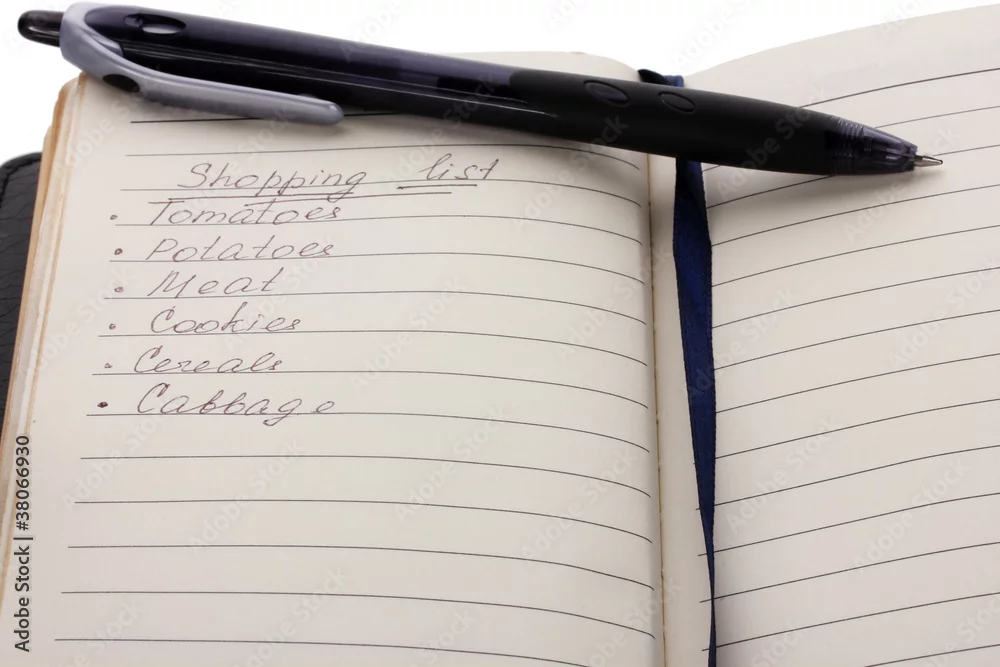 Shopping list
• Tomatoes
• Potatoes
• Meat
• Cookies
• Cereals
• Cabbage
Adobe Stock | #38066930